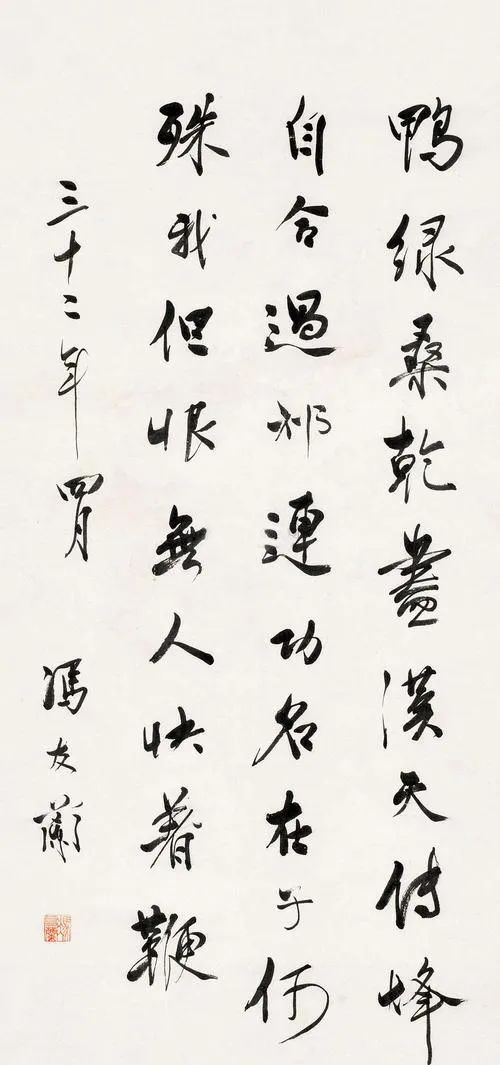 鴨緑桑乾盡漢天傳烽
自合過祁連功名在子何
殊我但恨無人快著鞭
三十二年四月
馮友蘭